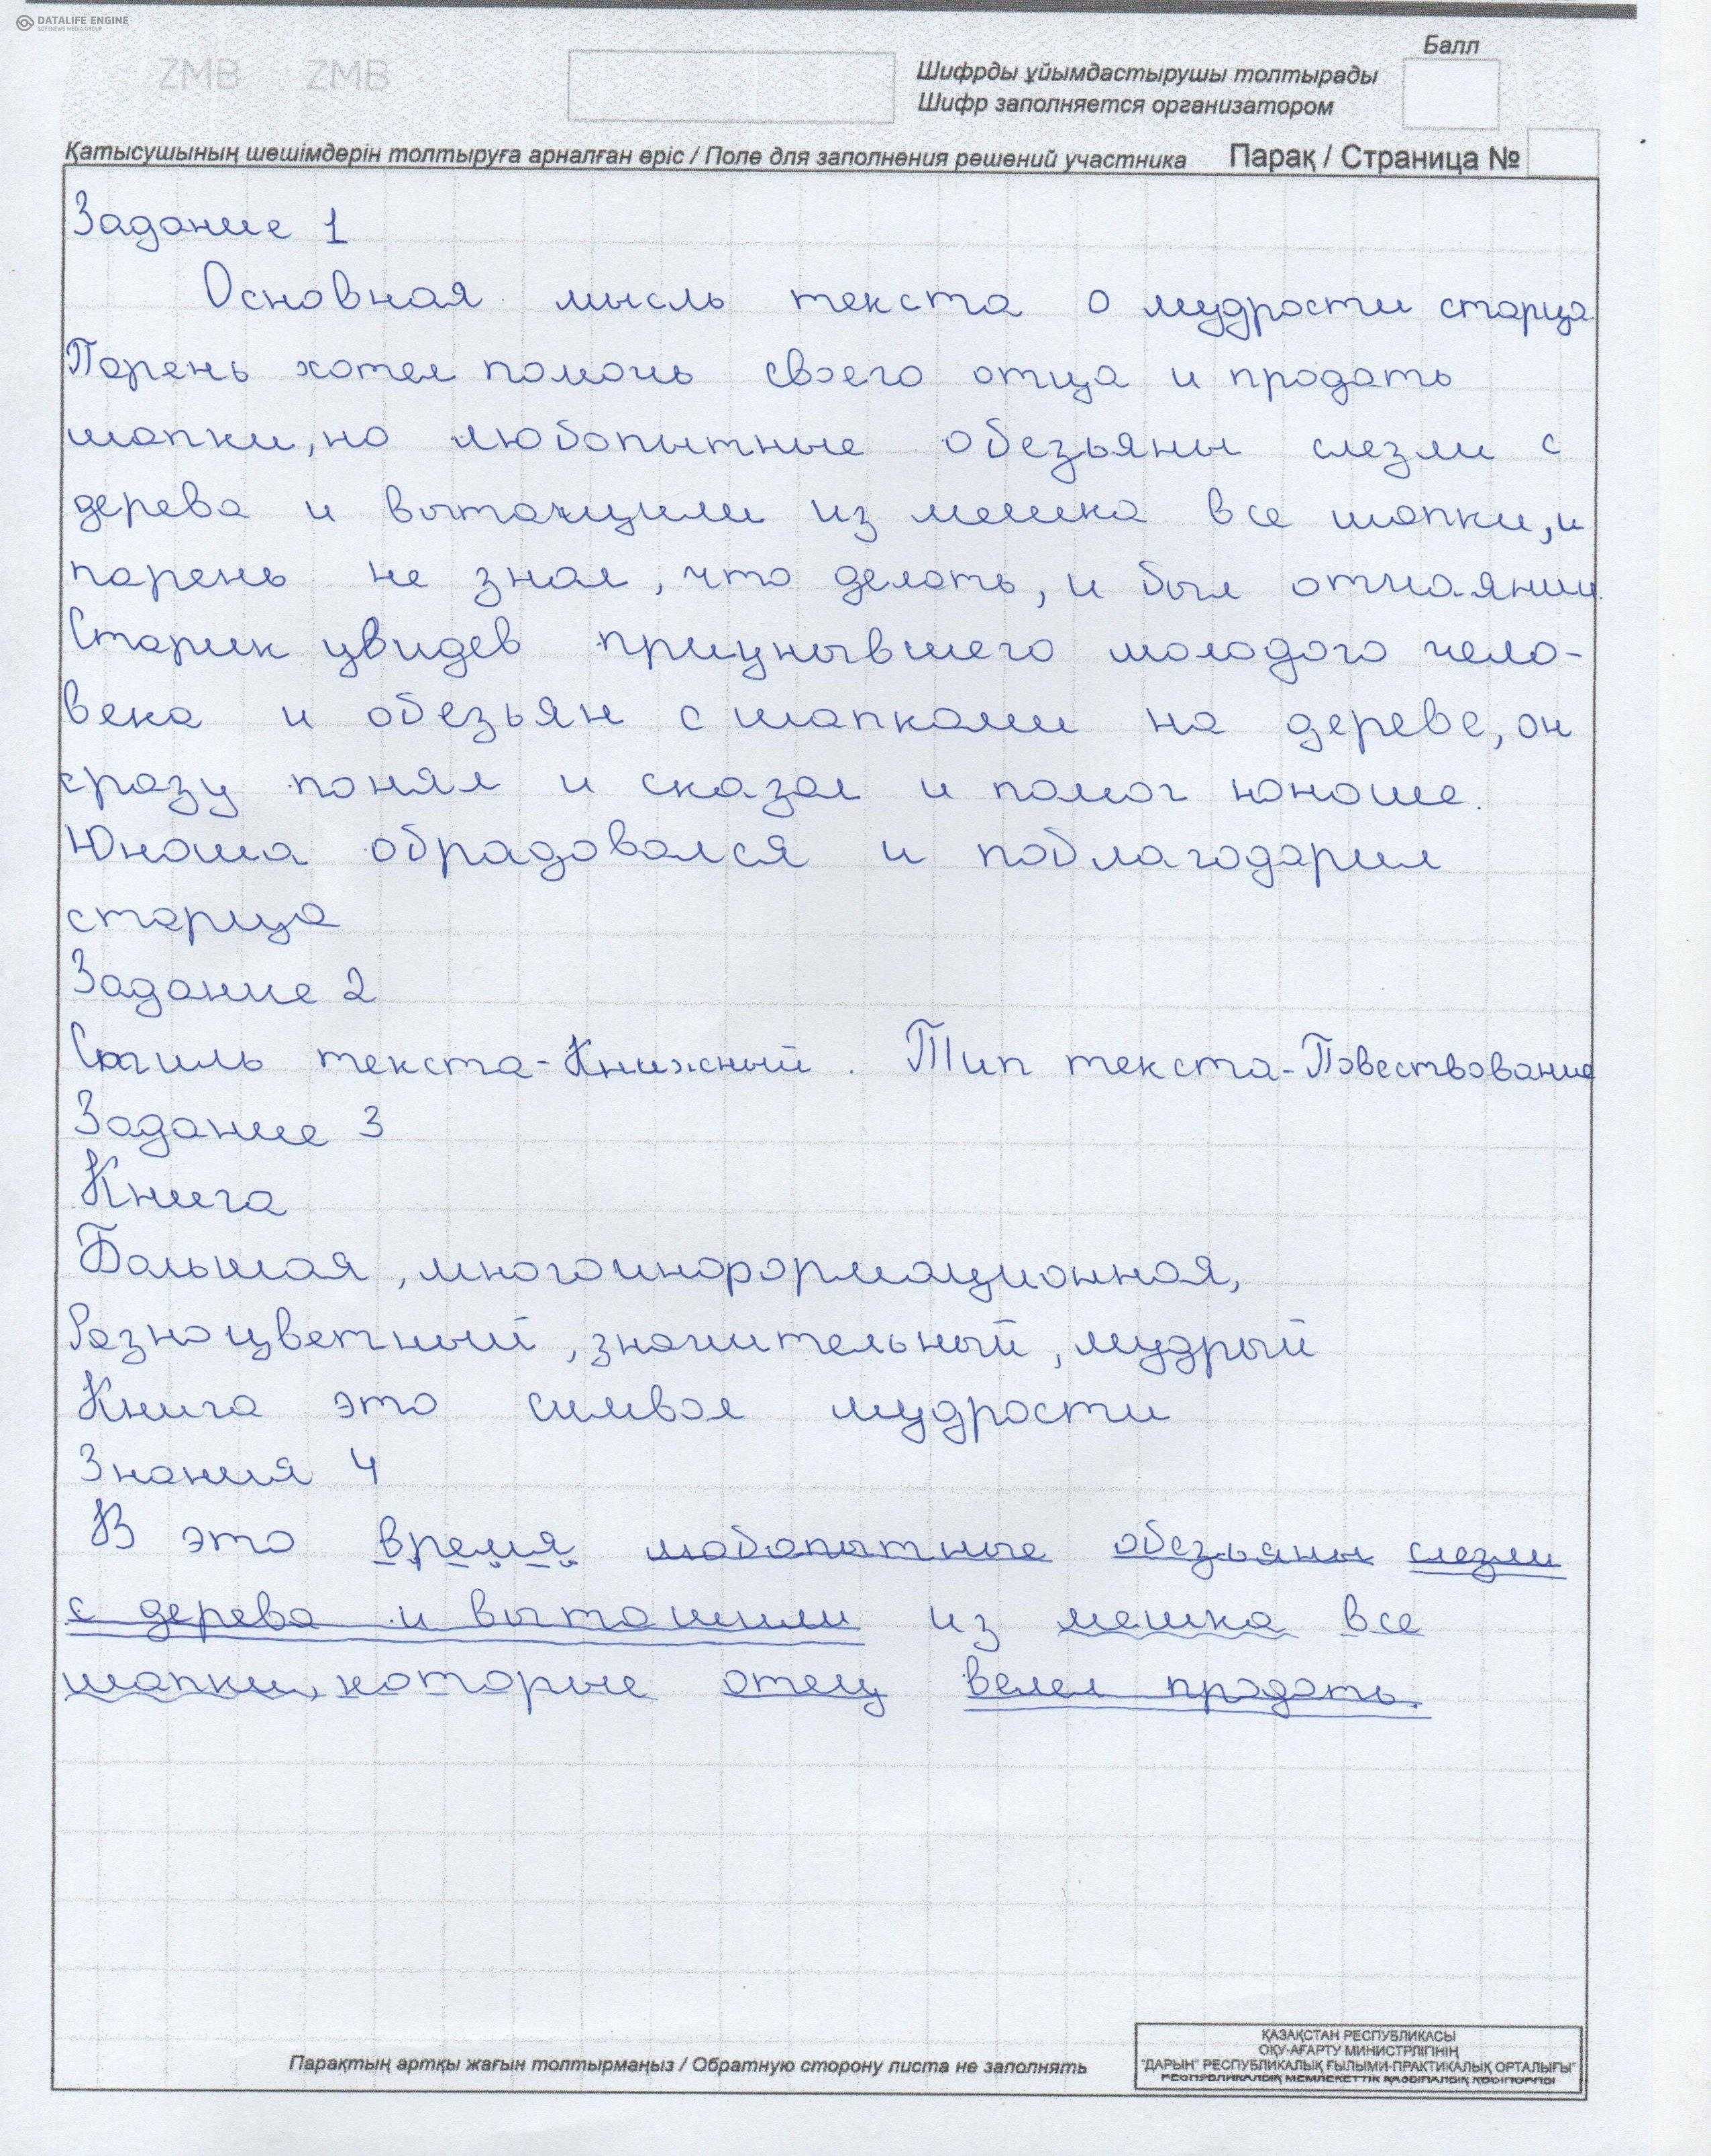 DATALIFE ENGINE
SOFTNEWS MEDIA GROUP
ZMB ZMB
Балл
Шифрды ұйымдастырушы толтырады
Шифр заполняется организатором
Қатысушының шешімдерін толтыруға арналған өріс / Поле для заполнения решений участника Парақ / Страница №
Задание 1
Основная мысль текста о мудрости старца.
Парень хотел помочь своего отца и продать
шапки, но любопытные обезьяны слезли с
дерева и вытащили из мешка все шапки, и
парень не знал, что делать, и был отчаянии.
Старик увидев приунывшего молодого чело-
века и обезьян с шапками на дереве, он
сразу понял и сказал и помог юноше.
Юноша обрадовался и поблагодарил
старца
Задание 2
Стиль текста-Книжный. Тип текста-Повествование
Задание 3
Книга
Большая, многоинформационная,
Разноцветный, значительный, мудрый
Книга это символ мудрости
Знания 4
В это время любопытные обезьяны слезли
с дерева и вытащили из мешка все
шапки, которые отец велел продать.
Парақтың артқы жағын толтырмаңыз / Обратную сторону листа не заполнять
ҚАЗАҚСТАН РЕСПУБЛИКАСЫ
ОҚУ-АҒАРТУ МИНИСТРЛІГІНІҢ
"ДАРЫН" РЕСПУБЛИКАЛЫҚ ҒЫЛЫМИ-ПРАКТИКАЛЫҚ ОРТАЛЫҒЫ"
РЕСПУБЛИКАЛЫҚ МЕМЛЕКЕТТІК ҚАЗЫНАЛЫҚ КӘСІПОРНЫ